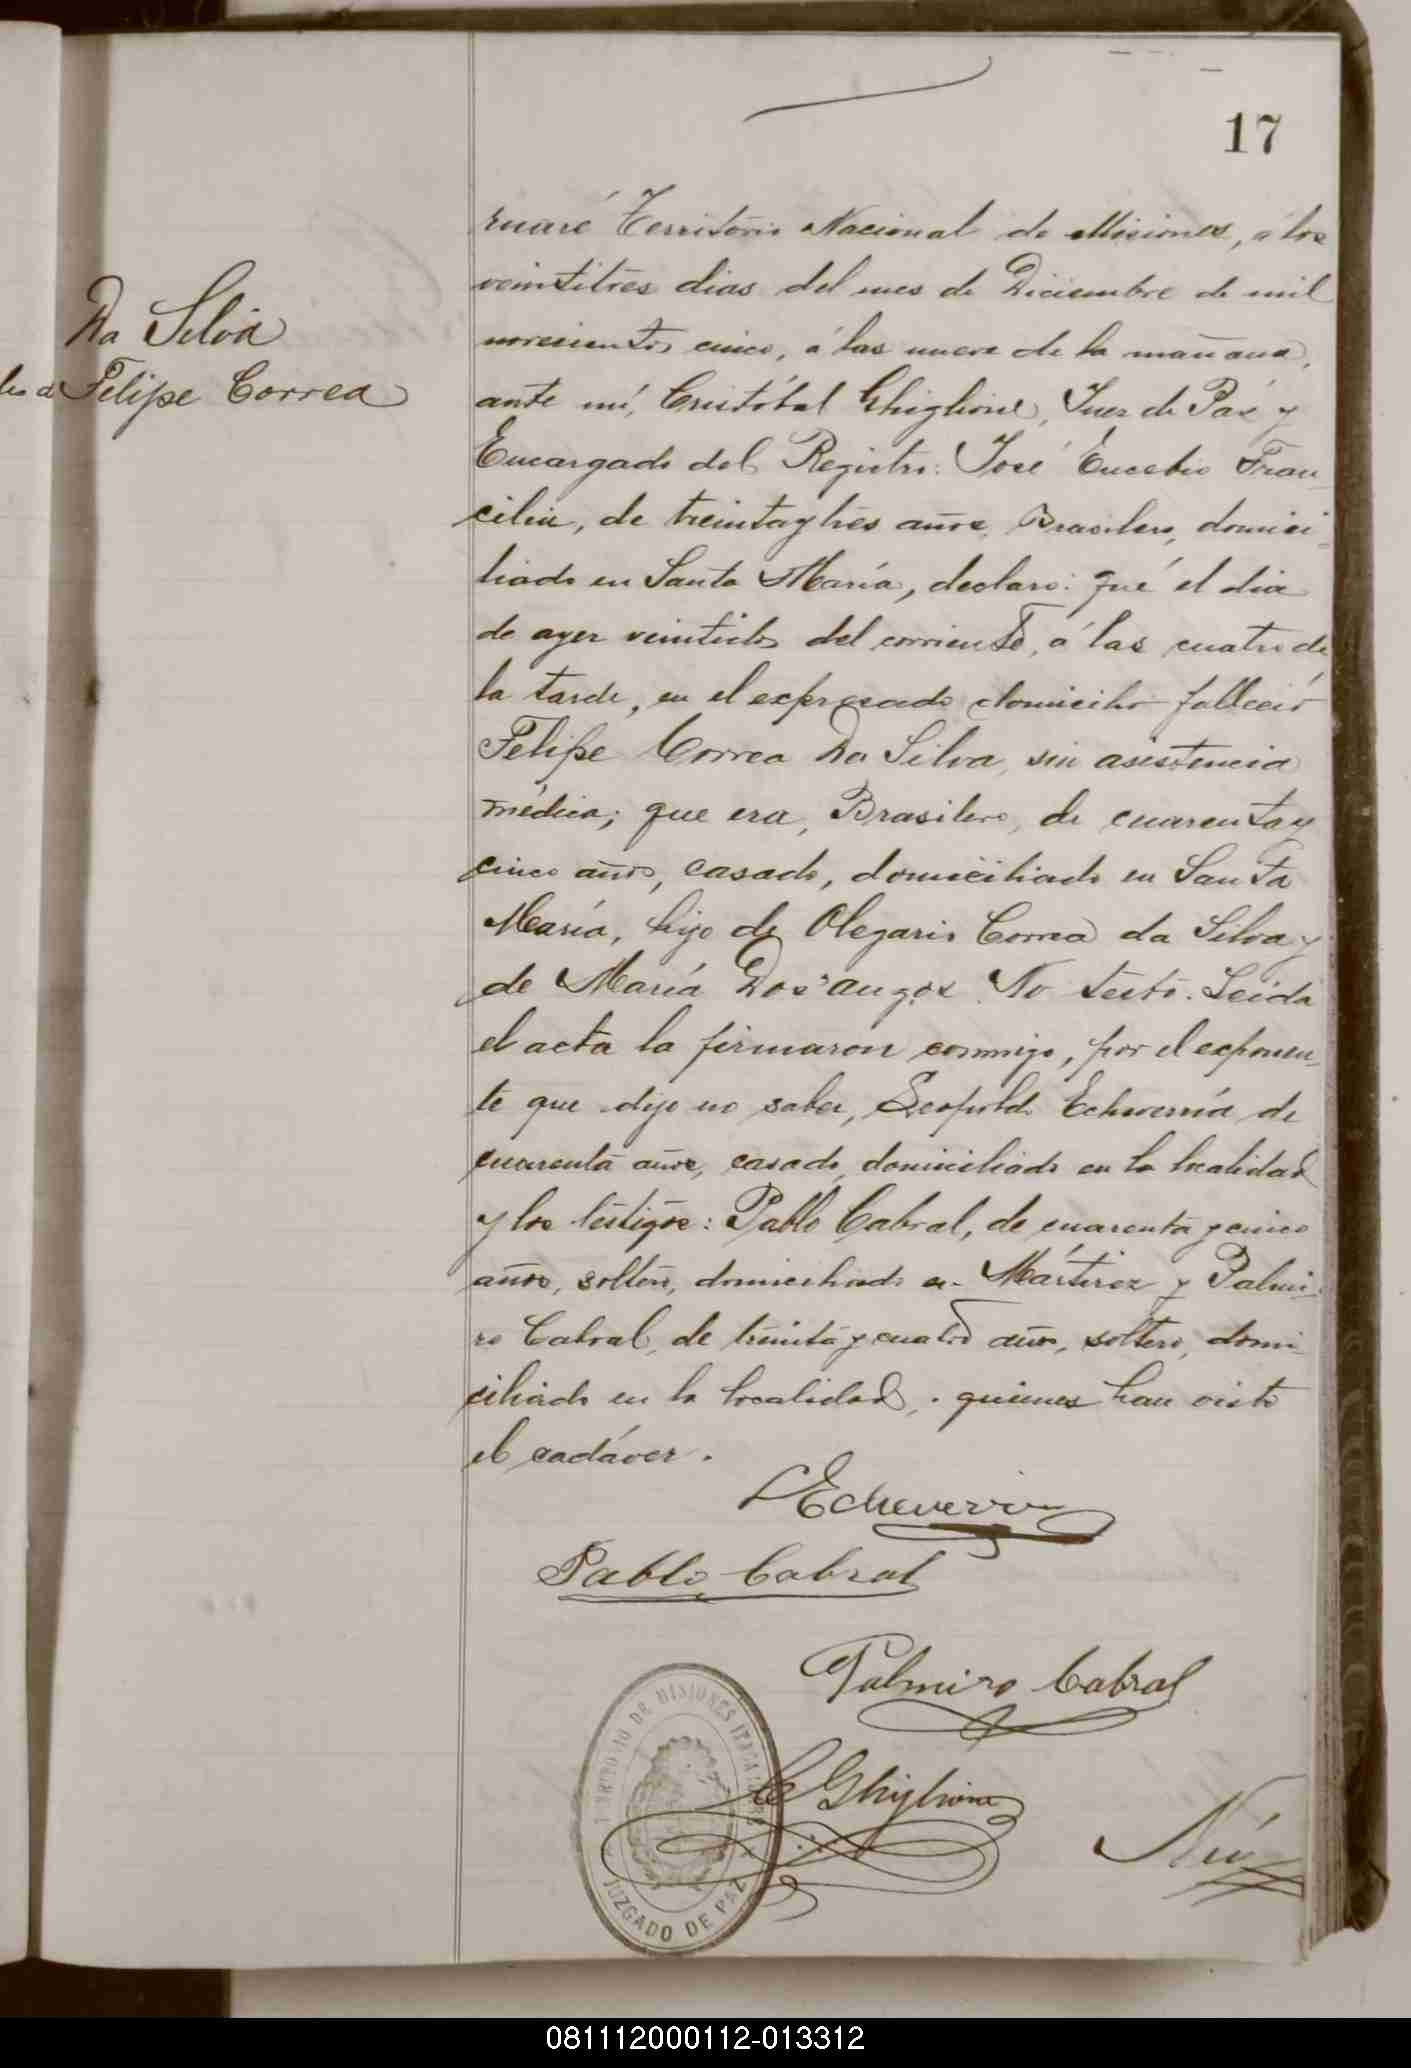 17
ruaré Territorio Nacional de Misiones, á los
veintitres dias del mes de Diciembre de mil
novecientos cinco, á las nueve de la mañana,
ante mí, Cristóbal Ghiglione, Juez de Paz y
Encargado del Registro: José Eucebio Fran-
cilin, de treinta y tres años, Brasilero, domici-
liado en Santa María, declaró: qué el dia
de ayer veintidos del corriente, á las cuatro de
la tarde, en el expresado domicilio falleció
Felipe Correa Da Silva, sin asistencia
médica; que era, Brasilero, de cuarenta y
cinco años, casado, domiciliado en Santa
María, hijo de Olegario Correa da Silva y
de María Dos angos. No testó. Leida
el acta la firmaron conmigo, por el exponen-
te que dijo no saber, Leopoldo Echeverría de
cuarenta años, casado, domiciliado en la localidad
y los testigos: Pablo Cabral, de cuarenta y cinco
años, soltero, domiciliado en Mártirez y Palmi-
ro Cabral, de treinta y cuatro años, soltero, domi-
ciliado en la localidad, quienes han visto
el cadáver.
Da Silva
Felipe Correa
LEcheverria
Pablo Cabral
Palmiro Cabral
C Ghiglione
TERRITORIO DE MISIONES ITACARUARÉ
JUZGADO DE PAZ
081112000112-013312